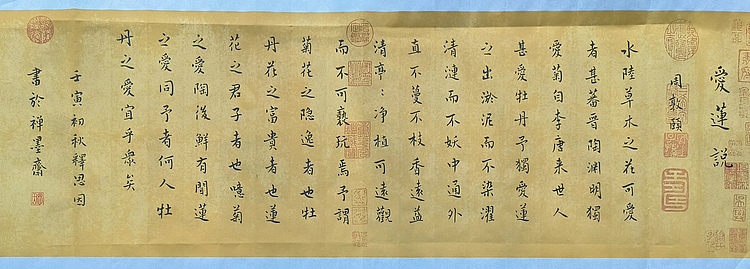 愛蓮說
周敦頤
水陸草木之花可愛
者甚蕃晋陶渊明獨
愛菊自李唐来世人
甚愛牡丹予獨愛蓮
之出淤泥而不染濯
清漣而不妖中通外
直不蔓不枝香遠益
清亭〻净植可遠觀
而不可褻玩焉予謂
菊花之隐逸者也牡
丹花之富貴者也蓮
花之君子者也噫菊
之愛陶後鮮有聞蓮
之愛同予者何人牡
丹之愛宜乎衆矣
壬寅初秋釋思因
書於禅墨齋